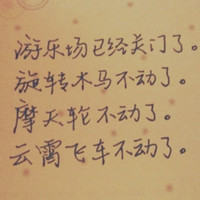 游乐场已经关门了。
旋转木马不动了。
摩天轮不动了。
云霄飞车不动了。